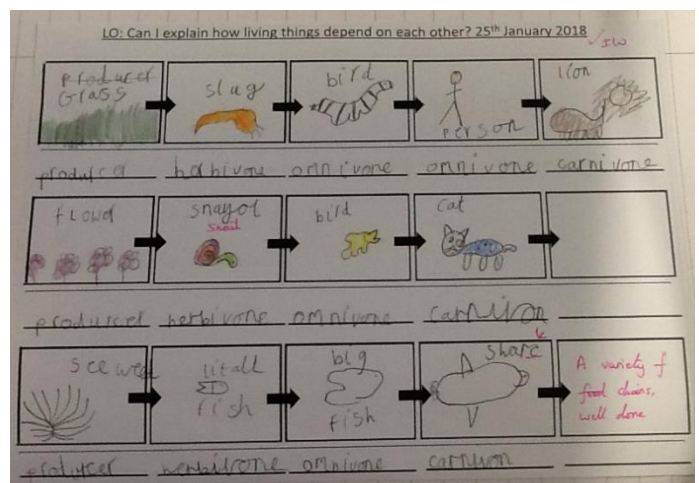 LO: Can I explain how living things depend on each other? 25th January 2018 ✓ IW
producer
Grass
slug
bird
person
lion
producer habivone omnivone omnivone carnivone
flowd
snayol
snail
bird
cat
producer herbivone omnivone carnivon
see weed
litall
fish
big
fish
share
k
A variety of
food chains,
well done
producer herbivone omnivone carnivon